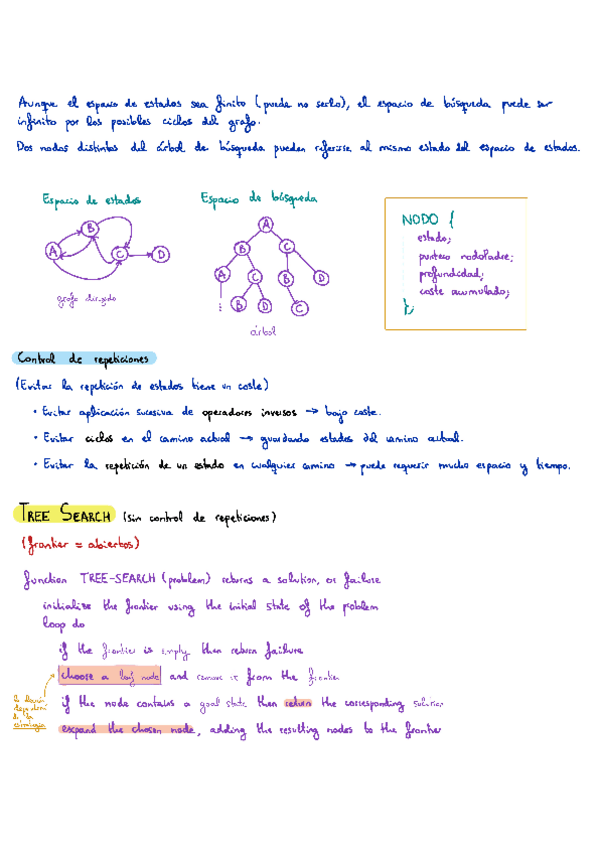 Aunque el espacio de estados sea finito (puede no serlo), el espacio de búsqueda puede ser
infinito por los posibles ciclos del grafo.
Dos nodos distintos del árbol de búsqueda pueden referirse al mismo estado del espacio de estados.
Espacio de estados
A
B
C
D
grafo dirigido
Espacio de búsqueda
A
B C
A C B D
B D C
árbol
NODO {
estado;
puntero nodoPadre;
profundidad;
coste acumulado;
};
Control de repeticiones
(Evitar la repetición de estados tiene un coste)
• Evitar aplicación sucesiva de operadores inversos → bajo coste.
• Evitar ciclos en el camino actual → guardando estados del camino actual.
• Evitar la repetición de un estado en cualquier camino → puede requerir mucho espacio y tiempo.
TREE SEARCH (sin control de repeticiones)
(frontier = abiertos)
function TREE-SEARCH (problem) returns a solution, or failure
initialize the frontier using the initial state of the problem
loop do
if the frontier is empty then return failure
choose a leaf node and remove it from the frontier
if the node contains a goal state then return the corresponding solution
expand the chosen node, adding the resulting nodes to the frontier
la
de la
estrategia